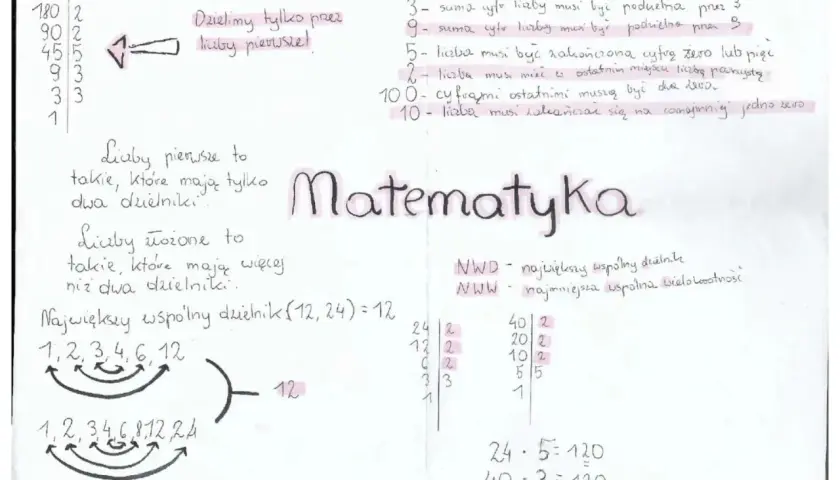 180 | 2
90 | 2
45 | 5
9 | 3
3 | 3
1
Dzielimy tylko przez
liczby pierwsze!
3 - suma cyfr liczby musi być podzielna przez 3
9 - suma cyfr liczby musi być podzielna przez 9
5 - liczba musi być zakończona cyfrą zero lub pięć
2 - liczba musi mieć w ostatnim miejscu liczbę parzystą
100 - cyframi ostatnimi muszą być dwa zera.
10 - liczba musi zakańczać się na conajmniej jedno zero
Liczby pierwsze to
takie, które mają tylko
dwa dzielniki.
Matematyka
Liczby złożone to
takie, które mają więcej
niż dwa dzielniki.
NWD - największy wspólny dzielnik
NWW - najmniejsza wspólna wielokrotność
Największy wspólny dzielnik (12, 24) = 12
1, 2, 3, 4, 6, 12
12
1, 2, 3, 4, 6, 8, 12, 24
24 | 2
12 | 2
6 | 2
3 | 3
1
40 | 2
20 | 2
10 | 2
5 | 5
1
24 · 5 = 120
40 · 3 = 120